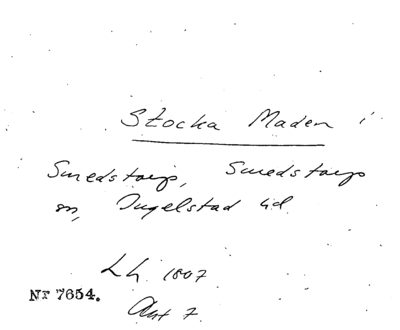 Stocka Maden i
Smedstorp, Smedstorps
sn, Ingelstad hd.
Lh. 1807
Nr 7654.
Akt 7.